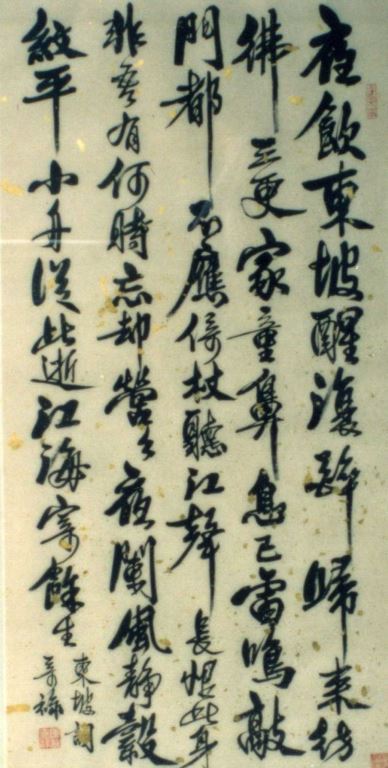 夜飲東坡醒復醉歸來彷
彿三更家童鼻息已雷鳴敲
門都不應倚杖聽江聲長恨此身
非吾有何時忘却營々夜闌風靜縠
紋平小舟從此逝江海寄餘生
東坡詞
奇祿